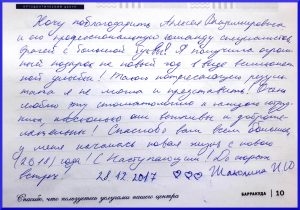 Хочу поблагодарить Алексея Владимировича
и его профессиональную команду специалистов
врачей с большой буквы! Я получила
подарок на новый год в виде великолеп-
ной улыбки! Такой потрясающий резуль-
тат я не могла и представить! Очень
люблю эту стоматологию и каждого
насколько они вежливы и доброже-
лательны! Спасибо вам всем
у меня началась новая жизнь с нового
(2018) года! С Наступающим! До скорых
встреч! 28.12.2017
Спасибо, что пользуетесь услугами нашего центра
БАРРАКУДА | 10